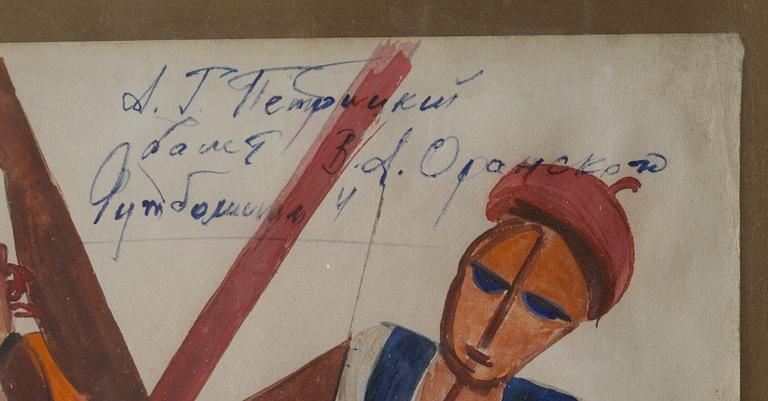 А. Г. Петрицкий
балет В. А. Оранского
Футболисты